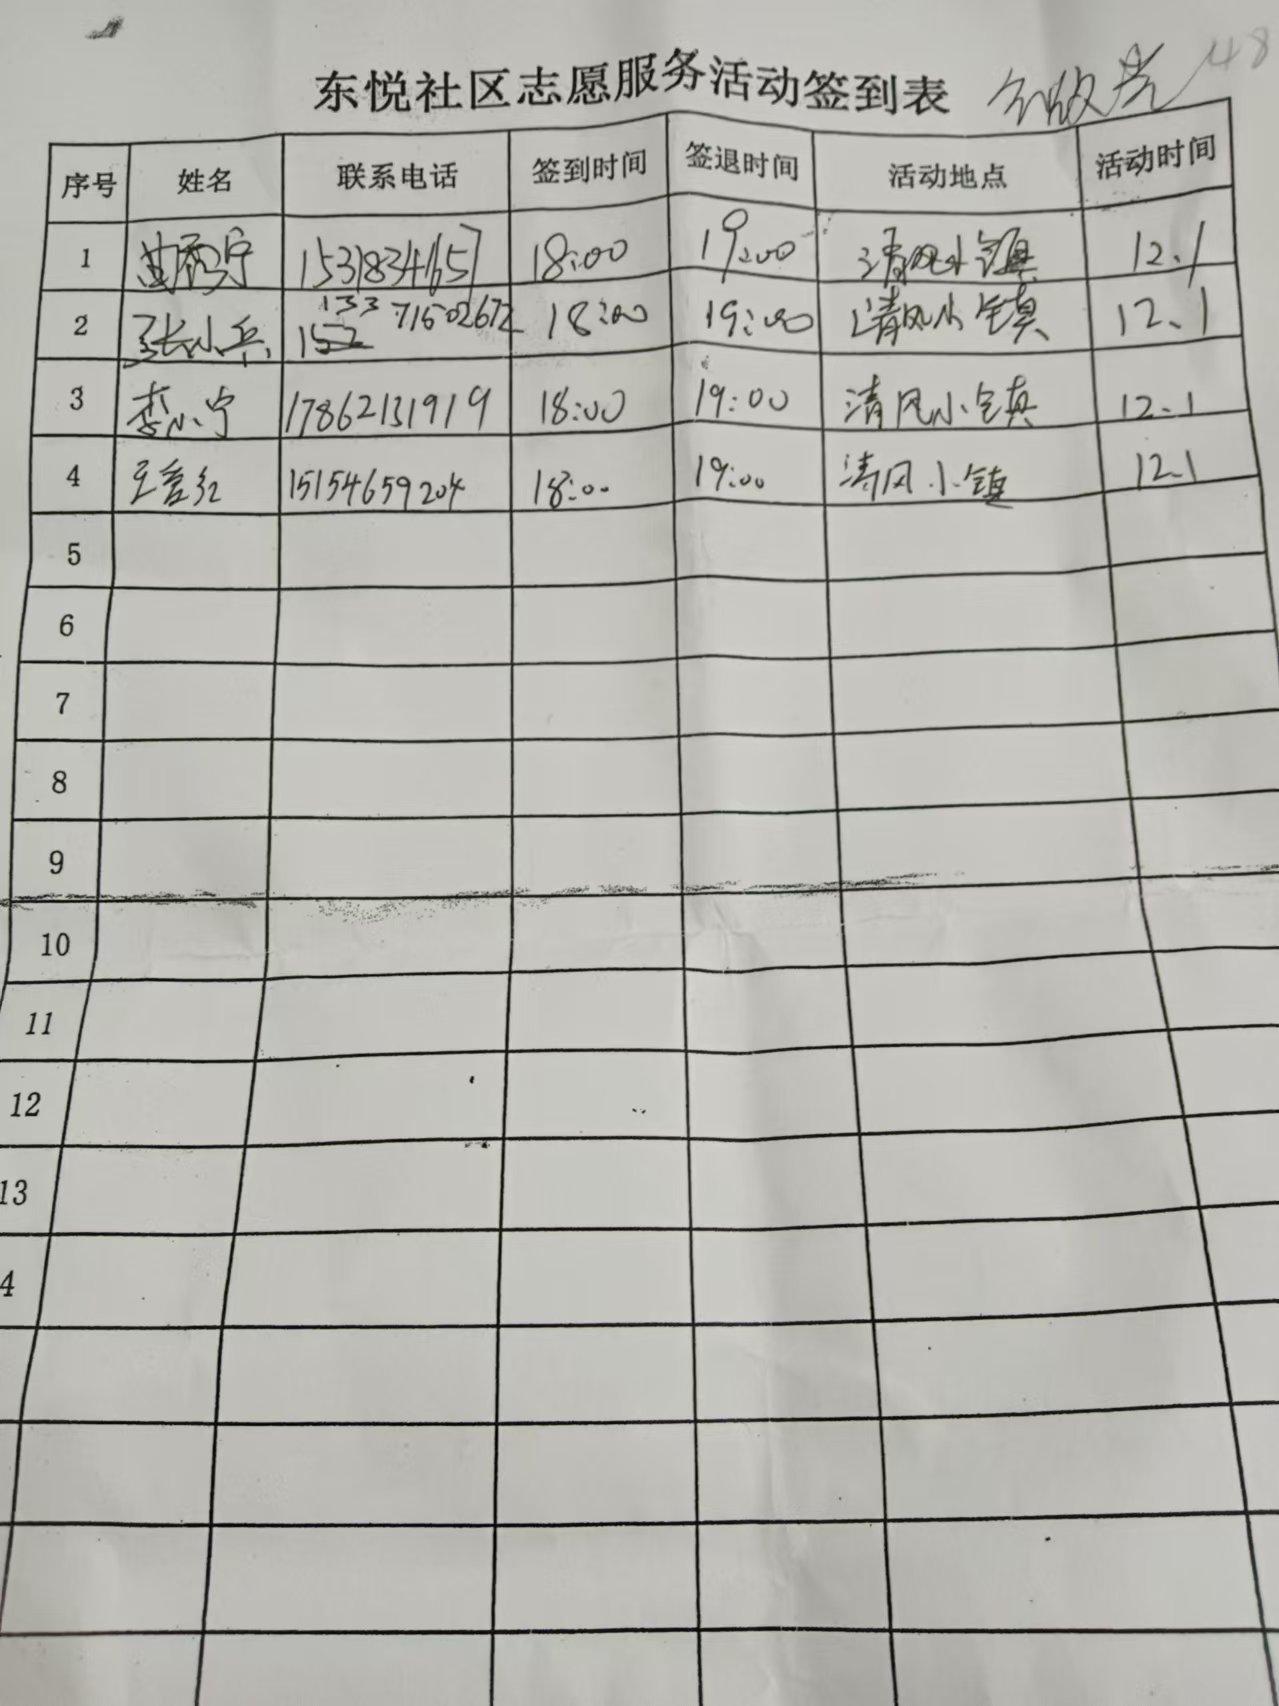 东悦社区志愿服务活动签到表 48
序号 姓名 联系电话 签到时间 签退时间 活动地点 活动时间
1 18:00 19:00 清风小镇 12.1
2 张小兵 152 133 71502672 18:00 19:00 清风小镇 12.1
3 李小宁 17862131919 18:00 19:00 清风小镇 12.1
4 15154659204 18:00 19:00 清风小镇 12.1
5
6
7
8
9
10
11
12
13
4